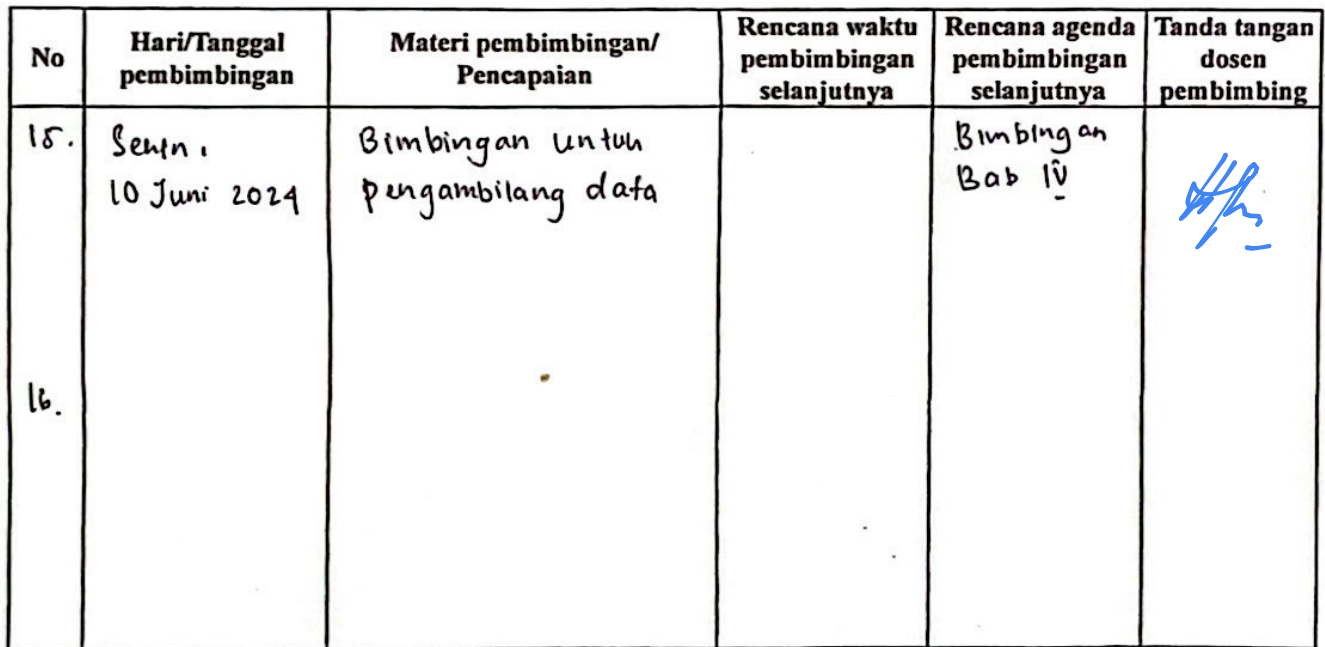 No
Hari/Tanggal
pembimbingan
Materi pembimbingan/
Pencapaian
Rencana waktu
pembimbingan
selanjutnya
Rencana agenda
pembimbingan
selanjutnya
Tanda tangan
dosen
pembimbing
15.
Senin,
10 Juni 2024
Bimbingan untuk
pengambilang data
Bimbingan
Bab IV
16.